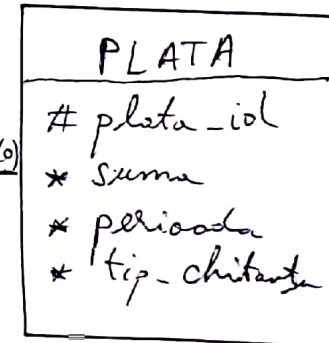 PLATA
# plata_id
(o)
* suma
* perioada
* tip_chitanta